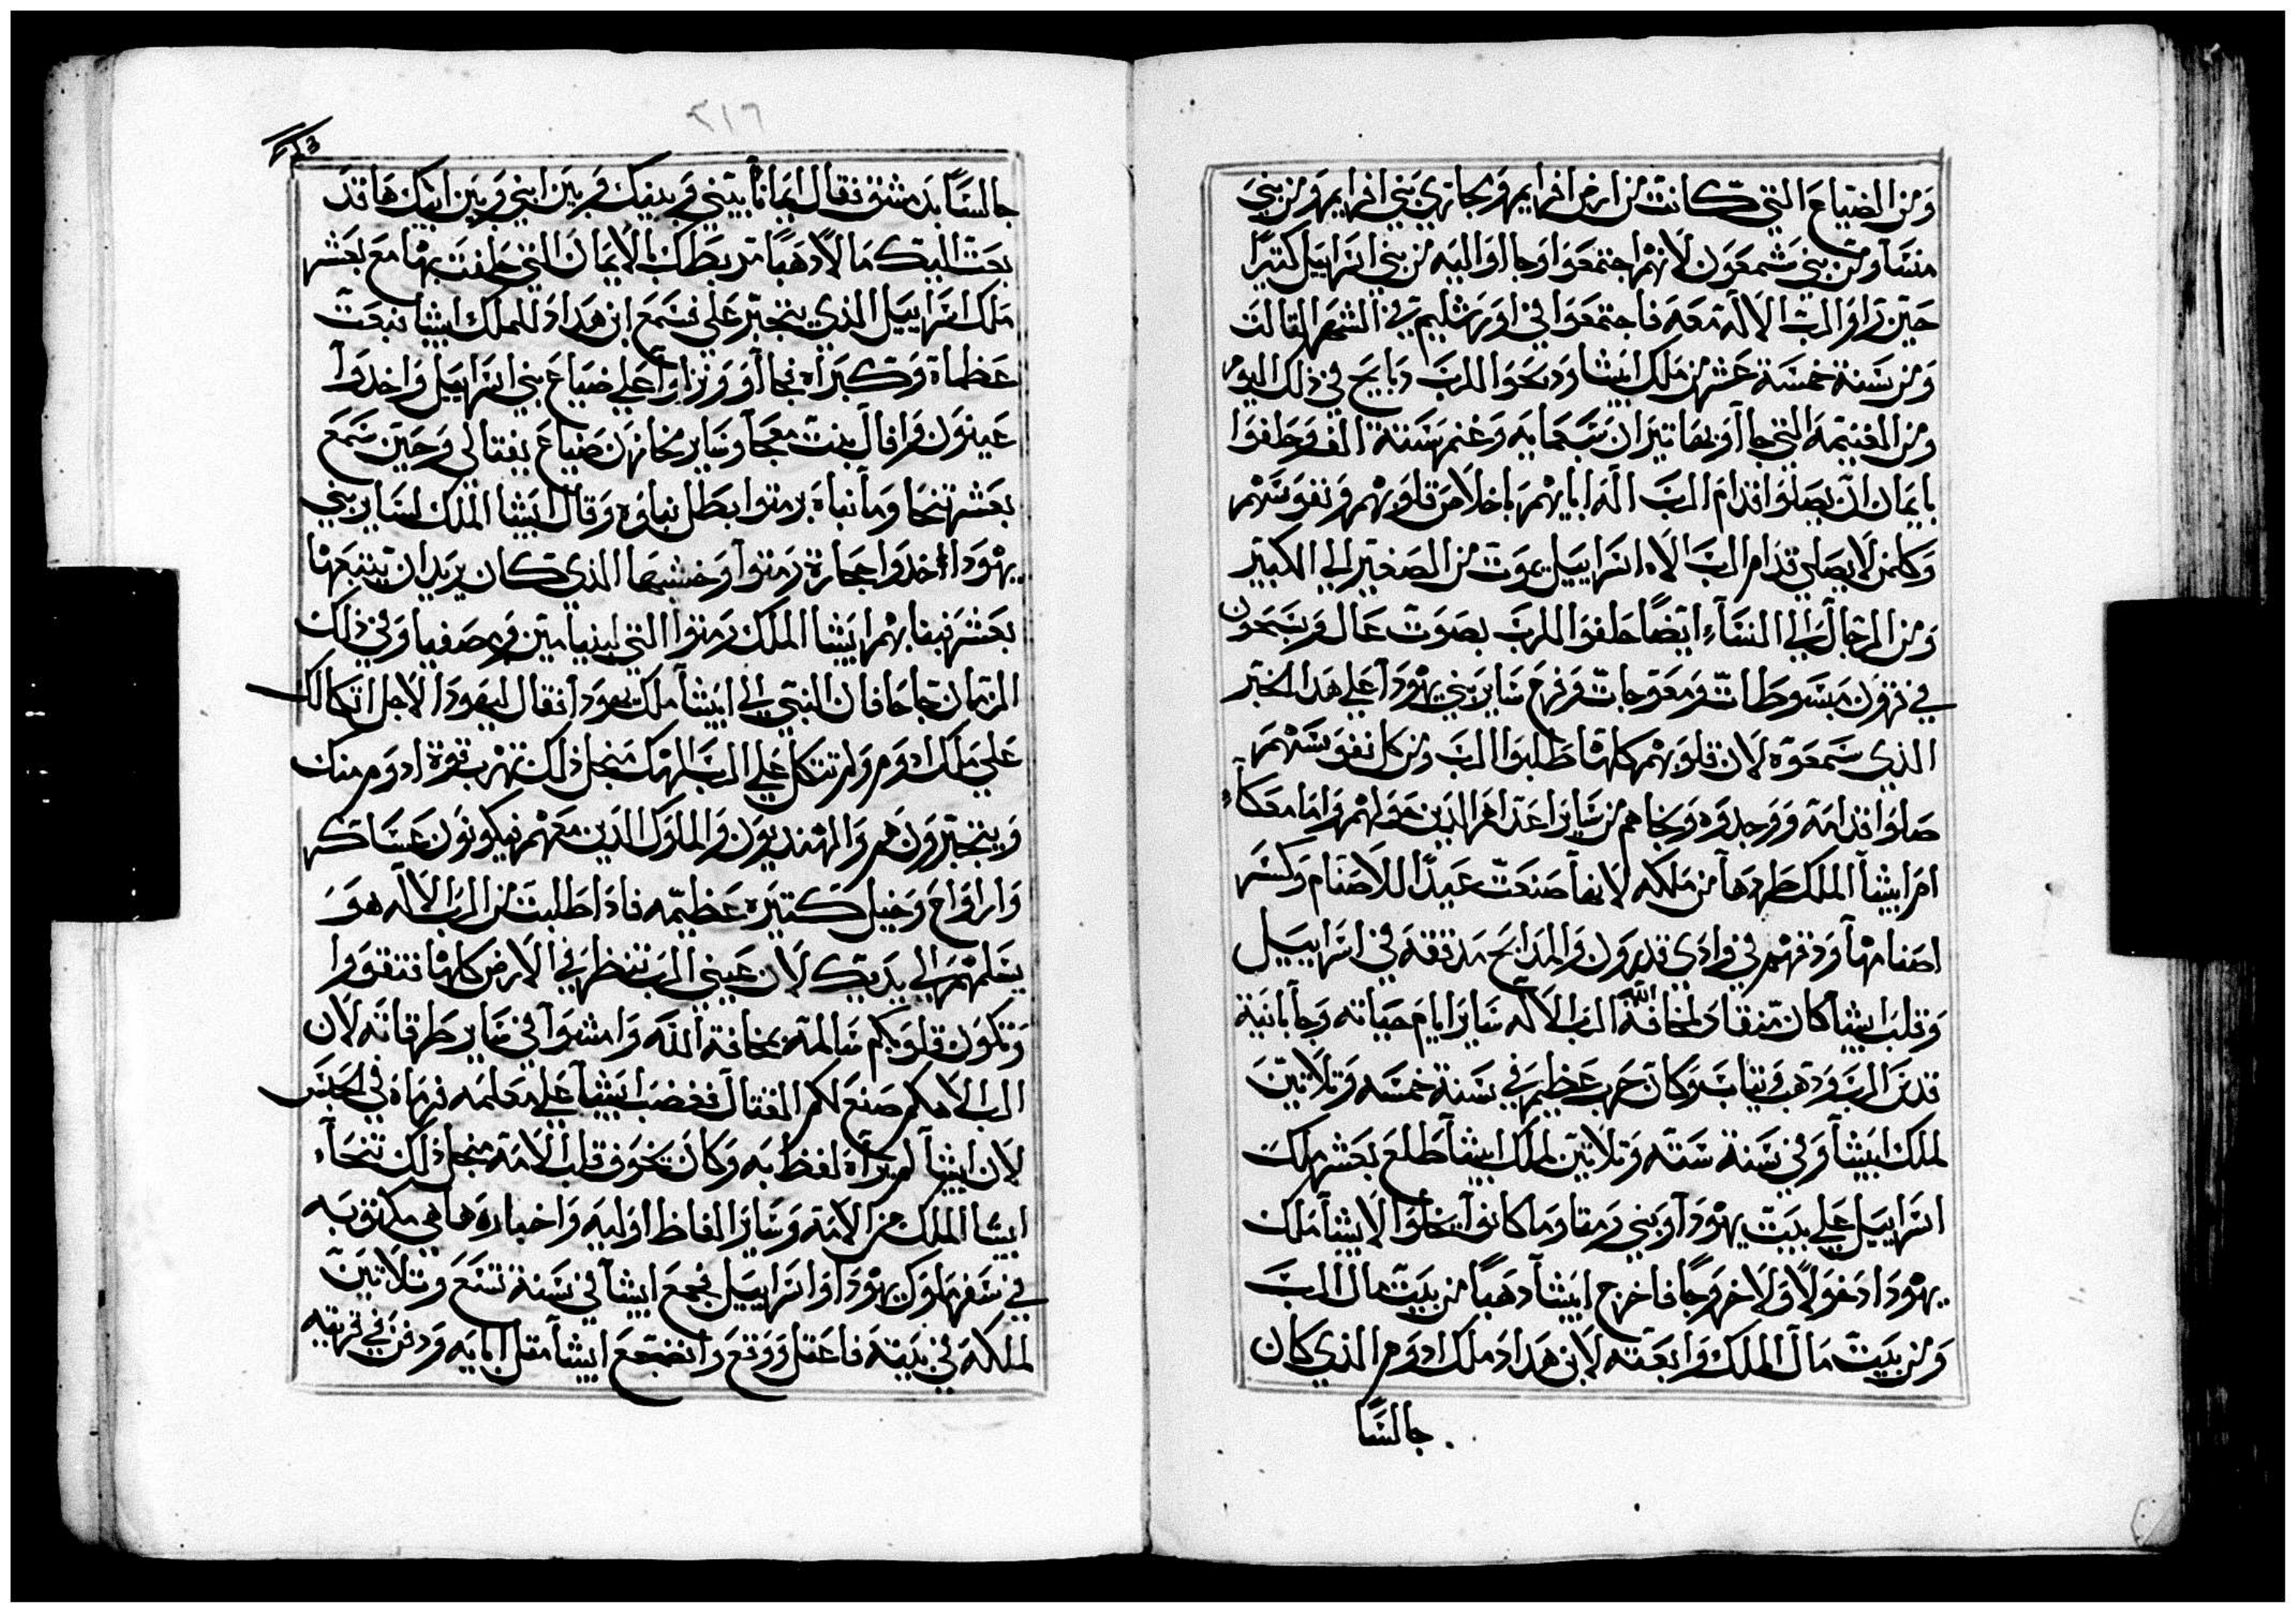 ومن الضياع التي كانت من ارض افرايم ويجاري بني افرايم ومن بني
منسا ومن بني شمعون لانهم اجتمعوا وجااوا اليه من بني اسراييل كتيرًا
حين راوا الرب الاله معه فاجتمعوا في اورشليم في الشهر التالت
ومن سنة خمسة عشر من ملك ايشا ودبحوا للرب دبايح في ذلك اليوم
ومن الغنيمة التي جااو بها تيران سبعمايه وغنم ستة الف وحلفوا
بايمان ان يصلوا قدام الرب اله ابايهم باخلاص قلوبهم ونفوسهم
وكلمن لا يصلي قدام الرب الاه اسراييل يموت من الصغير الي الكبير
ومن الرجال الي النساء ايضًا حلفوا للرب بصوت عال ويسبحون
في قرون مبسوطات ومعوجات وفرح ساير بني يهودا علي هدا الخبر
الذي سمعوه لان قلوبهم كلها طلبوا الرب ومن كل نفوسهم
صلوا قدامه ووجدوه ونجاهم من ساير اعداهم الدين حولهم واما معكاء
ام ايشا الملك طردها من ملكه لانها صنعت عيدًا للاصنام وكسر
اصنامها ودقهم في وادي قدرون والمدابح مدققه في اسراييل
وقلب ايشا كان منقاد لمخافة الله الرب الاله ساير ايام حياته وجا بانية
قدس الرب ودهب وتياب وكان حرب عظيم في سنة خمسه وتلاتين
لملك ايشا وفي سنة سته وتلاتين لملك ايشا طلع بعشر ملك
اسراييل علي بيت يهودا وبني رمتا وما كانوا يخلوا لايشا ملك
يهودا دخولًا ولا خروجًا فاخرج ايشا دهبًا من بيت مال الرب
ومن بيت مال الملك وابعته لابن هداد ملك ادوم الذي كان
جالسًا
٢١٦
جالسًا بدمشق فقال ايمانًا بيني وبينك وبين ابني وبين ابيك هاقد
بعت اليك مالًا دهبًا تربطك بالايمان التي حلفت بها مع بعشر
ملك اسراييل الذي يتجبر علي فسمع ابن هداد للملك ايشا فبعت
عظماة وكبراه فجااو ووزراوا علي ضياع بني اسراييل واخدوا
عينون وافال بيت معجا وساير مخازن ضياع يفتالي وحين سمع
بعشر تنحا وما نباه رمتوا بطل نباوه وقال ايشا الملك لساير بني
يهودا اخدوا حجارة رمتوا وخشبها الذي كان يريد ان يتبعها
بعشر فبنا بهم ايشا الملك رمتوا التي لبنيامين ومصفيا وفي ذلك
الزمان جا حافان النبي الي ايشا ملك يهودا فقال له يهودا لاجل اتكالك
علي ملك ادوم ولم تتكل علي الرب الهك منجل ذلك تهرب قوة ادوم منك
ويتجبرون هم والهنديون والملوك الدين معهم فيكونون عساكر
وارواح وخيل كتيره عظيمه فادا طلبت من الرب الاله هو
يسلمهم الي يديك لان عيني الرب تنظر في الارض كلها فتقووا
وتكون قلوبكم سالمة بمخافة الله وامشوا في ساير طرقاته لان
الرب الاهكم صنع لكم القتال فغضب ايشا علي معلمه فرماه في الحبس
لان ايشا لم يراه لفظ به وكان تخوف قلب الامة منجل ذلك تنحاء
ايشا الملك من الامة وساير الفاظ اوليه واخباره هاهي مكتوبه
في سفر ملوك يهودا واسراييل فجمع ايشا في سنة تسع وتلاتين
لملكه في بيته فاعتل ووقع وانضجع ايشا مقل ابايه ودفن في قريته